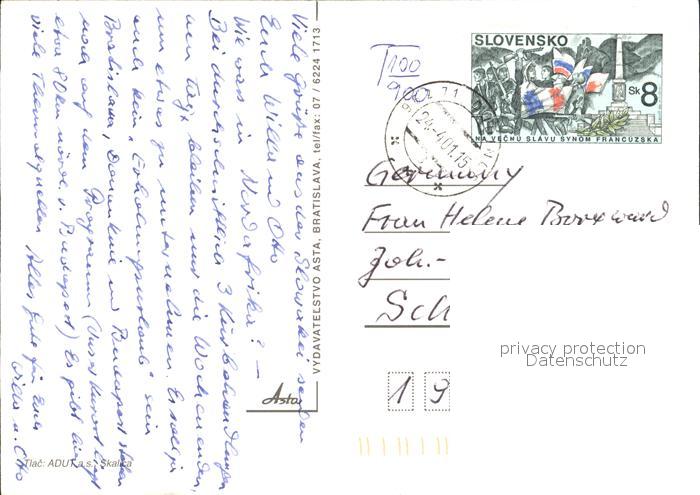 Viele Grüße aus der Slowakei senden
Euch Willi und Otto
Wie war's in Nordafrika? –
Bei durchschnittlich 3 Kurbehandlungen
am Tag, bleiben nur die Wochenenden,
um etwas zu unternehmen. Es soll ja
auch kein „Erholungsurlaub“ sein
Bratislava, Donauknie u. Budapest stehen
noch auf dem Programm (Unser Kurort liegt
etwa 80 km nördl. v. Budapest) Es gibt hier
viele Thermalquellen. Alles Gute für Euch
u. Otto
VYDAVATEĽSTVO ASTA, BRATISLAVA, tel/fax: 07 / 6224 1713
Asta
Tlač: ADUT a.s., Skalica
T 100
SLOVENSKO
Sk 8
NA VEČNÚ SLÁVU SYNOM FRANCÚZSKA
24.-4.01.15
Germany
Frau Helene
Joh.-
Sch
1 9
privacy protection
Datenschutz